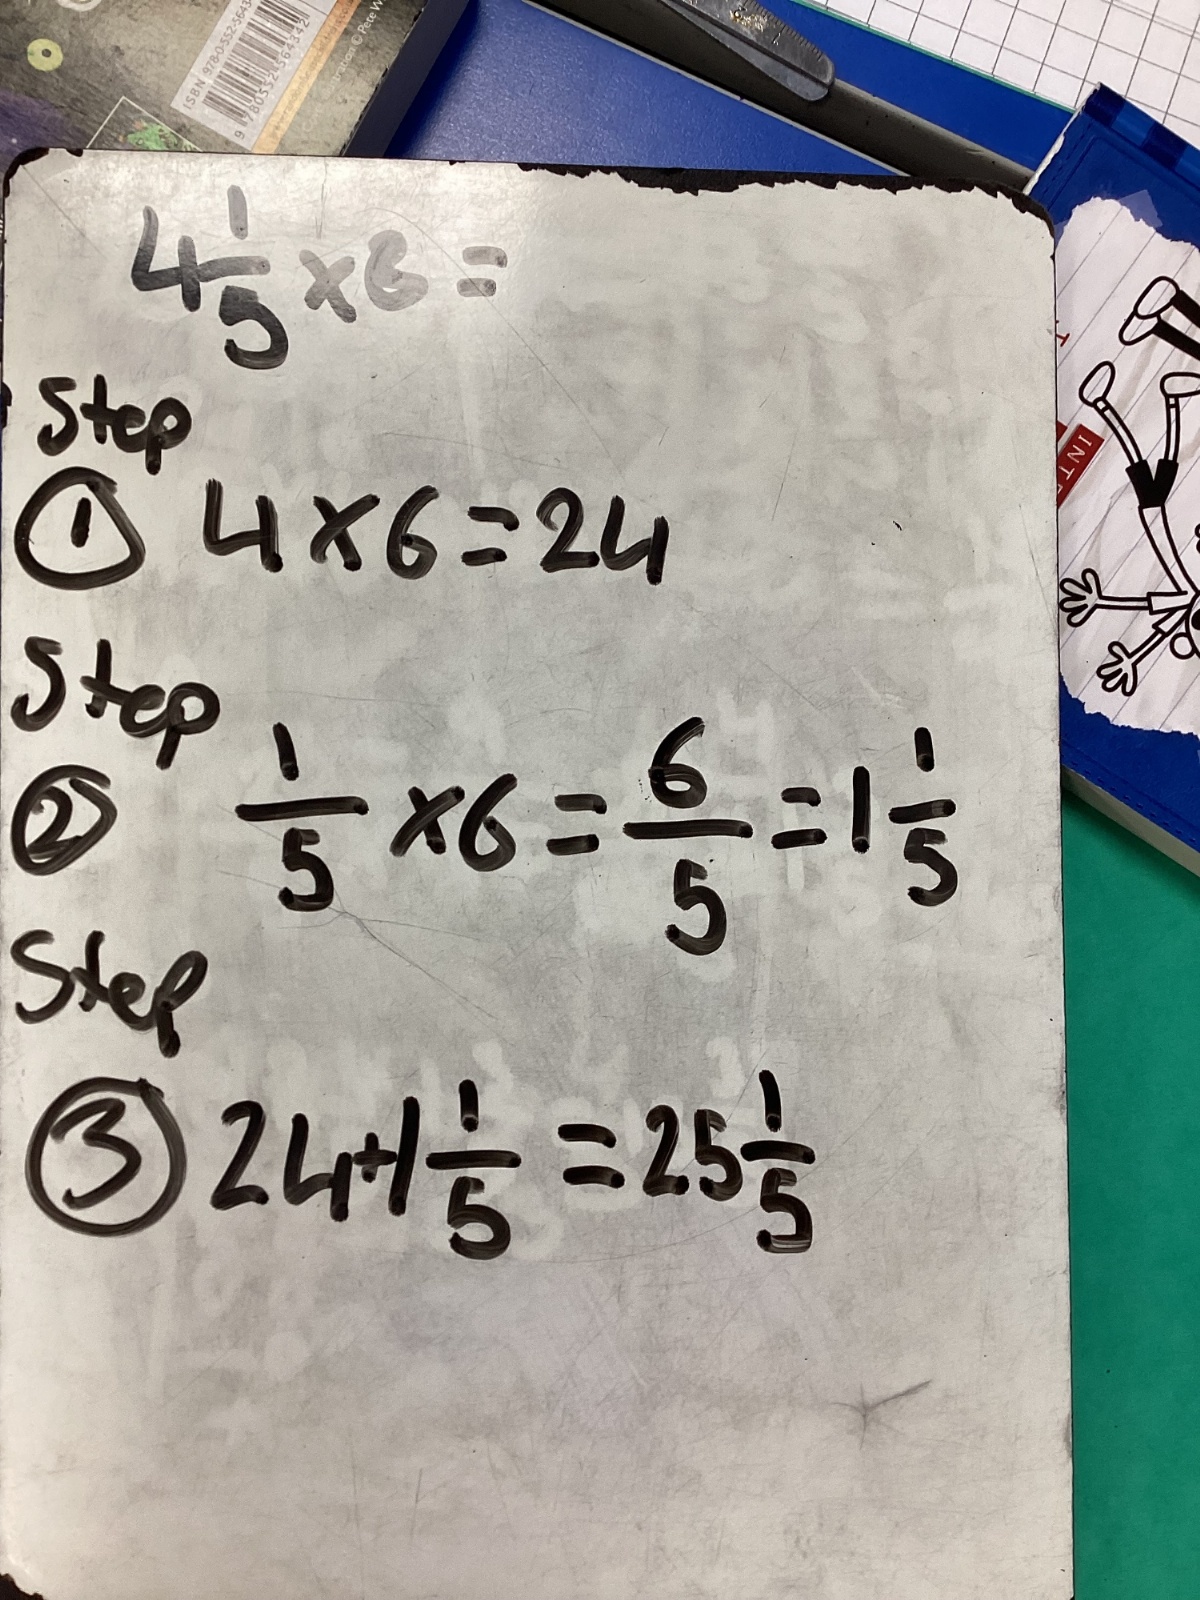 ISBN 978-0-552-5643
9 780552 564342
4 1/5 x 6 =
Step
① 4 x 6 = 24
Step
② 1/5 x 6 = 6/5 = 1 1/5
Step
③ 24 + 1 1/5 = 25 1/5